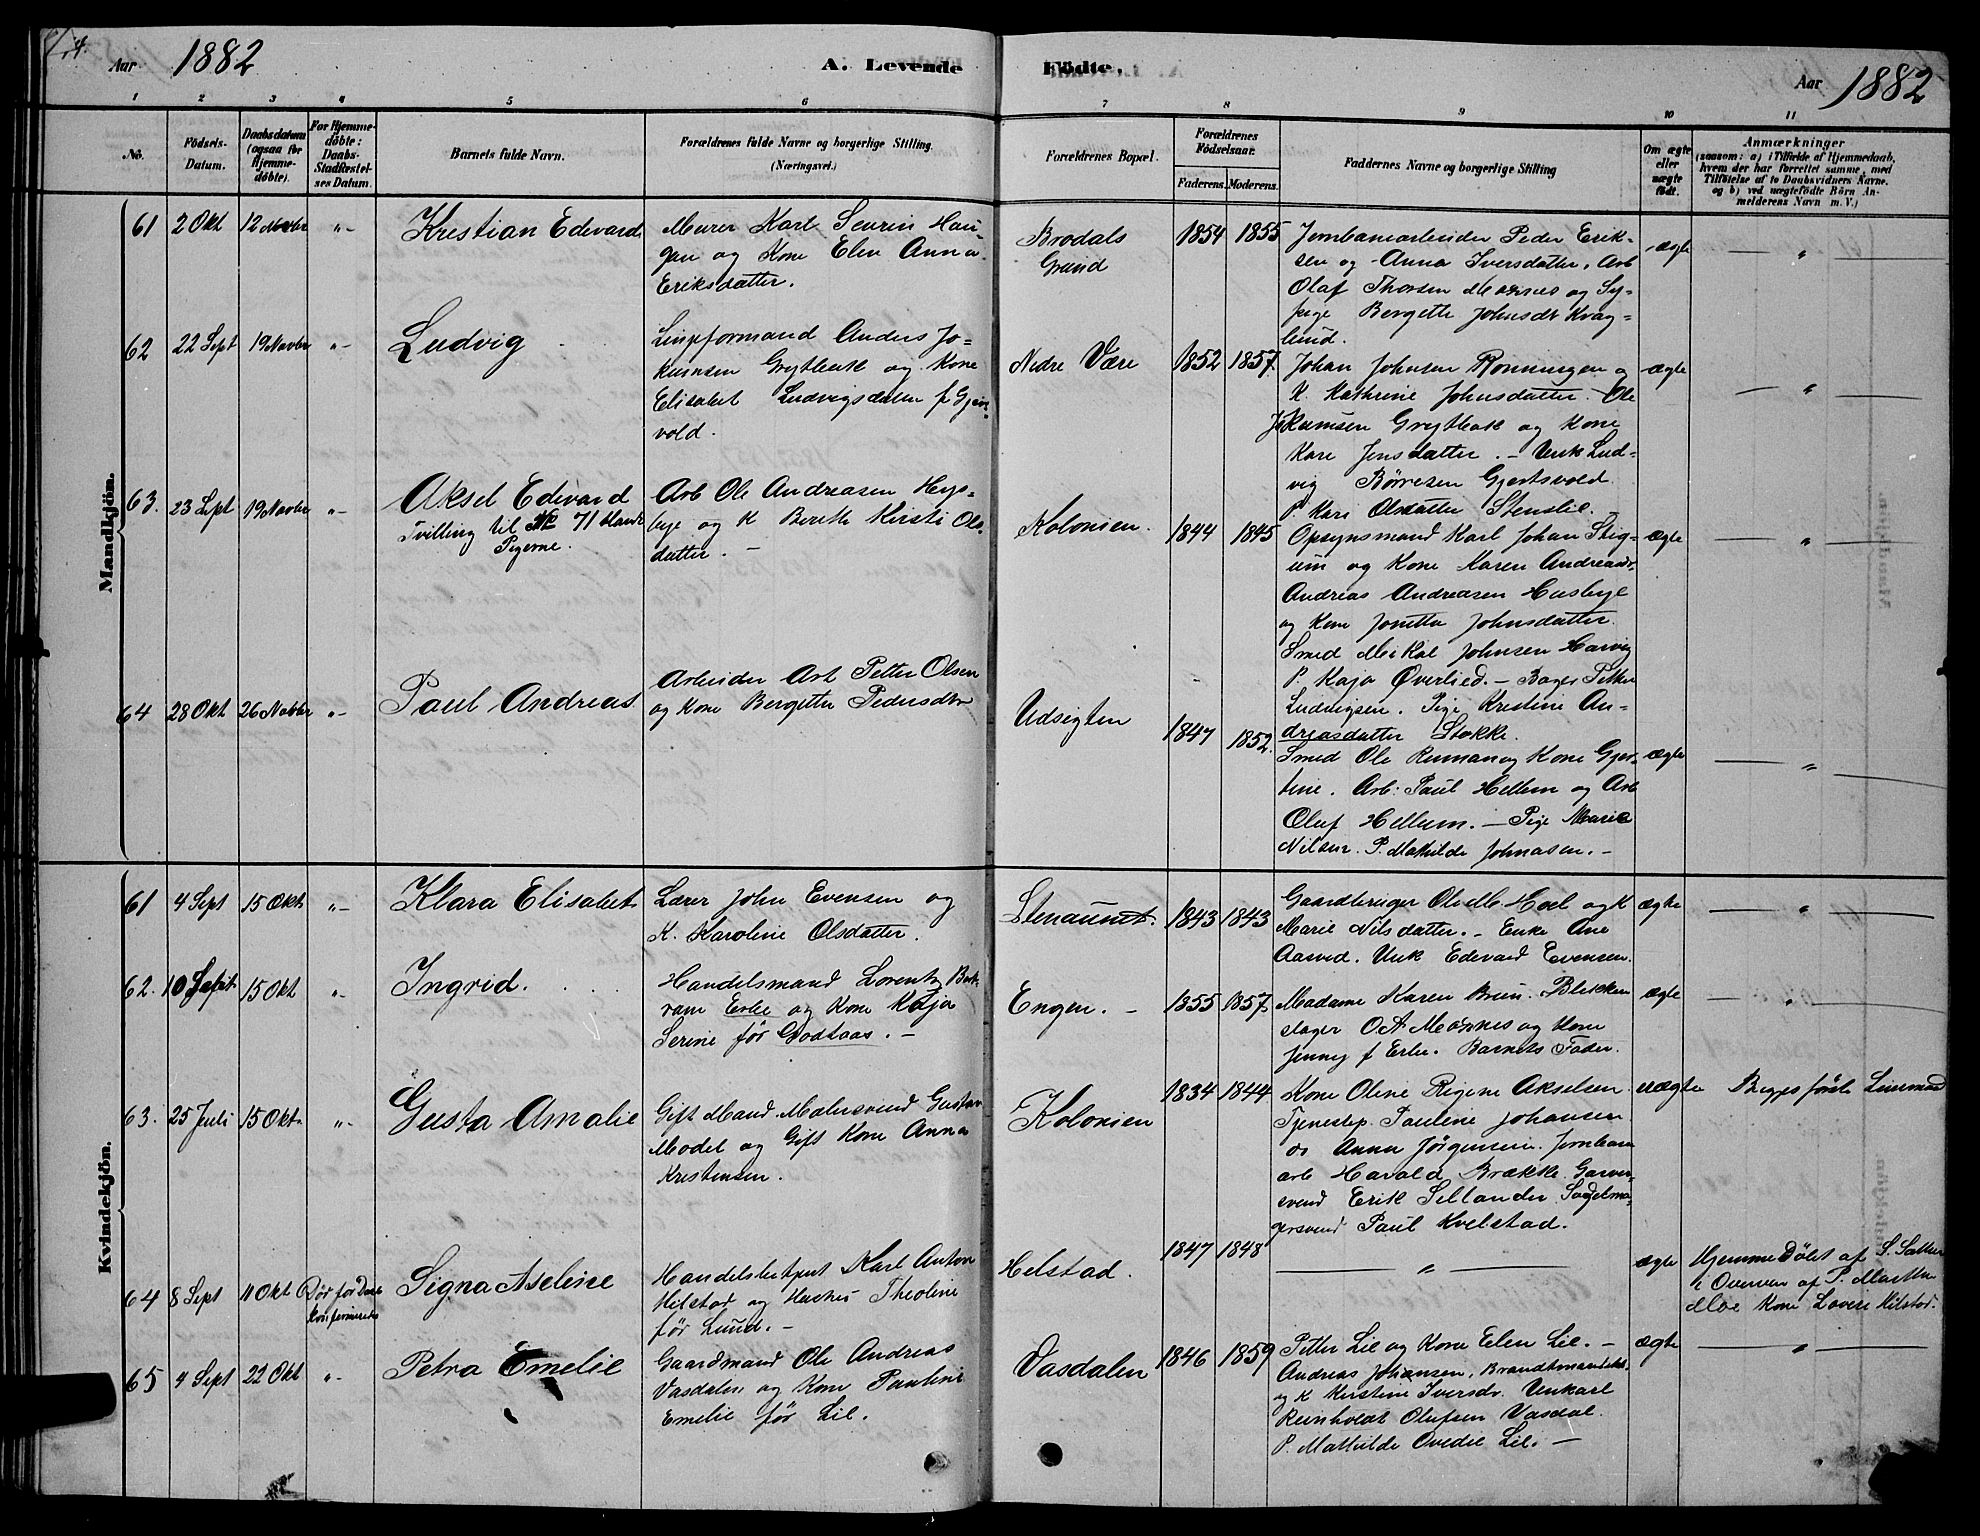 Aar 1882 A. Levende
Födte. Aar 1882
1 2 3 4 5 6
7 8 9 10 11
No.
Födsels-
Datum.
Daabsdatum
(ogsaa for
Hjemme-
döbte).
For Hjemme-
döbte:
Daabs-
Stadfæstel-
ses Datum.
Barnets fulde Navn.
Forældrenes fulde Navne og borgerlige Stilling.
(Næringsvei.)
Forældrenes Bopæl.
Forældrenes
Födselsaar.
Faderens. Moderens.
Faddernes Navne og borgerlige Stilling
Om ægte
eller
uægte
födt.
Anmærkninger
(saasom: a) i Tilfælde af Hjemmedaab,
hvem der har forrettet samme, med
Tilföielse af to Daabsvidners Navne.
og b) ved uægtefödte Börn An-
melderens Navn m. V.)
Mandkjön.
61 2 Okt 12 Novbr "- Kristian Edevard
Murer Karl Seurin Hau-
gan og Kone Elen Anna
Eriksdatter.
Brodals
Grund
1854 1855
Jernbanearbeider Peder Erik-
sen og Anna Iversdatter. Arb
Olaf Thorsen Moxnes og Sy-
pige Bergette Johnsdt Krag-
lund.
ægte "
62 22 Sept 19 Novbr "- Ludvig
Linjeformand Anders Jo-
kumsen Grytbak og Kone
Elisabet Ludvigsdatter f Gjers-
vold.
Nedre Være 1852 1857.
Johan Johnsen Rønningen og
K. Kathrine Johnsdatter. Ole
Jokumsen Grytbak og Kone
Kari Jensdatter. - Unk Lud-
vig Børresen Gjertsvold
P. Kari Olsdatter Stenslie.
ægte "
63. 23 Sept 19 Novbr "- Aksel Edevard
Tvilling til No 71 blandt
Pigerne.
Arb Ole Andreasen Hus-
bye og K Bereth Kirsti Ols-
datter. -
Kolonien. 1844 1845
Opsynsmand Karl Johan Stig-
um og Kone Karen Andreasdt
Andreas Andreasen Husbye
og Kone Jonetta Johnsdatter
Smed Mikal Johnsen Harvig
P. Kaja Øverlied. - Bager Petter
Ludvigsen. Pige Kristine An-
dreasdatter Stokke.
ægte "
64 28 Okt 26 Novbr "- Paul Andreas
Arbeider Arb Petter Olsen
og Kone Bergette Pedersdtr
Udsigten 1847 1852.
Smed Ole Reman og Kone Gjer-
tine. Arb: Paul Hellem og Arb
Oluf Hellum. - Pige Marie
Nilsen. P. Mathilde Johnasen. -
ægte "
Kvindekjön.
61 4 Sept 15 Okt "- Klara Elisabet
Lærer John Evensen og
K. Karoline Olsdatter.
Stenaunet. 1843 1843
Gaardbruger Ole M. Hoel og K
Marie Nilsdatter. - Enke Ane
Aasved. Unk Edevard Evensen.
ægte "
62. 10 Sept. 15 Okt "- Ingrid.
Handelsmand Lorentz Bert-
ram Erbe og Kone Kaja
Serine før Godtaas. -
Engen. - 1855 1857.
Madame Karen Brun. Blikken-
slager O A Moxnes og Kone
Jenny f Erbe. Barnets Fader.
ægte "
63. 25 Juli 15 Okt. "- Gusta Amalie
Gift Mand Malersvend Gustav
Model og Gift Kone Anna
Kristensen.
Kolonien 1834 1844
Kone Oline Rigine Akselsen
Tjenestep. Pauline Johansen
do Anna Jörgensen. Jernbane
arb Harald Brække. Garver-
svend Erik Sellander. Sadelma-
gersvend Paul Kvelstad.
uægte Begges første Leiermaal
64 8 Sept 11 Okt Død før Daabs
Konfirmeredes
Signa Aseline
Handelsbetjent Karl Anton
Hilstad og Hustru Theoline
før Lund. -
Helstad. 1847 1848 "
ægte
Hjemmedøbt af S. Sather
i Overvær af P. Martha
Moe Kone Lovise Hilstad.
65 4 Sept 22 Okt "- Petra Emelie
Gaardmand Ole Andreas
Vasdalen og Kone Pauline
Emelie før Lil.
Vasdalen 1846 1859
Petter Lie og Kone Elen Lie. -
Andreas Johansen, Brandtmandsbk.
og K Kirstine Iversdr. Unkarl
Reinholdt Olufsen Vasdal.
P. Mathilde Ovedie Lie. -
ægte "